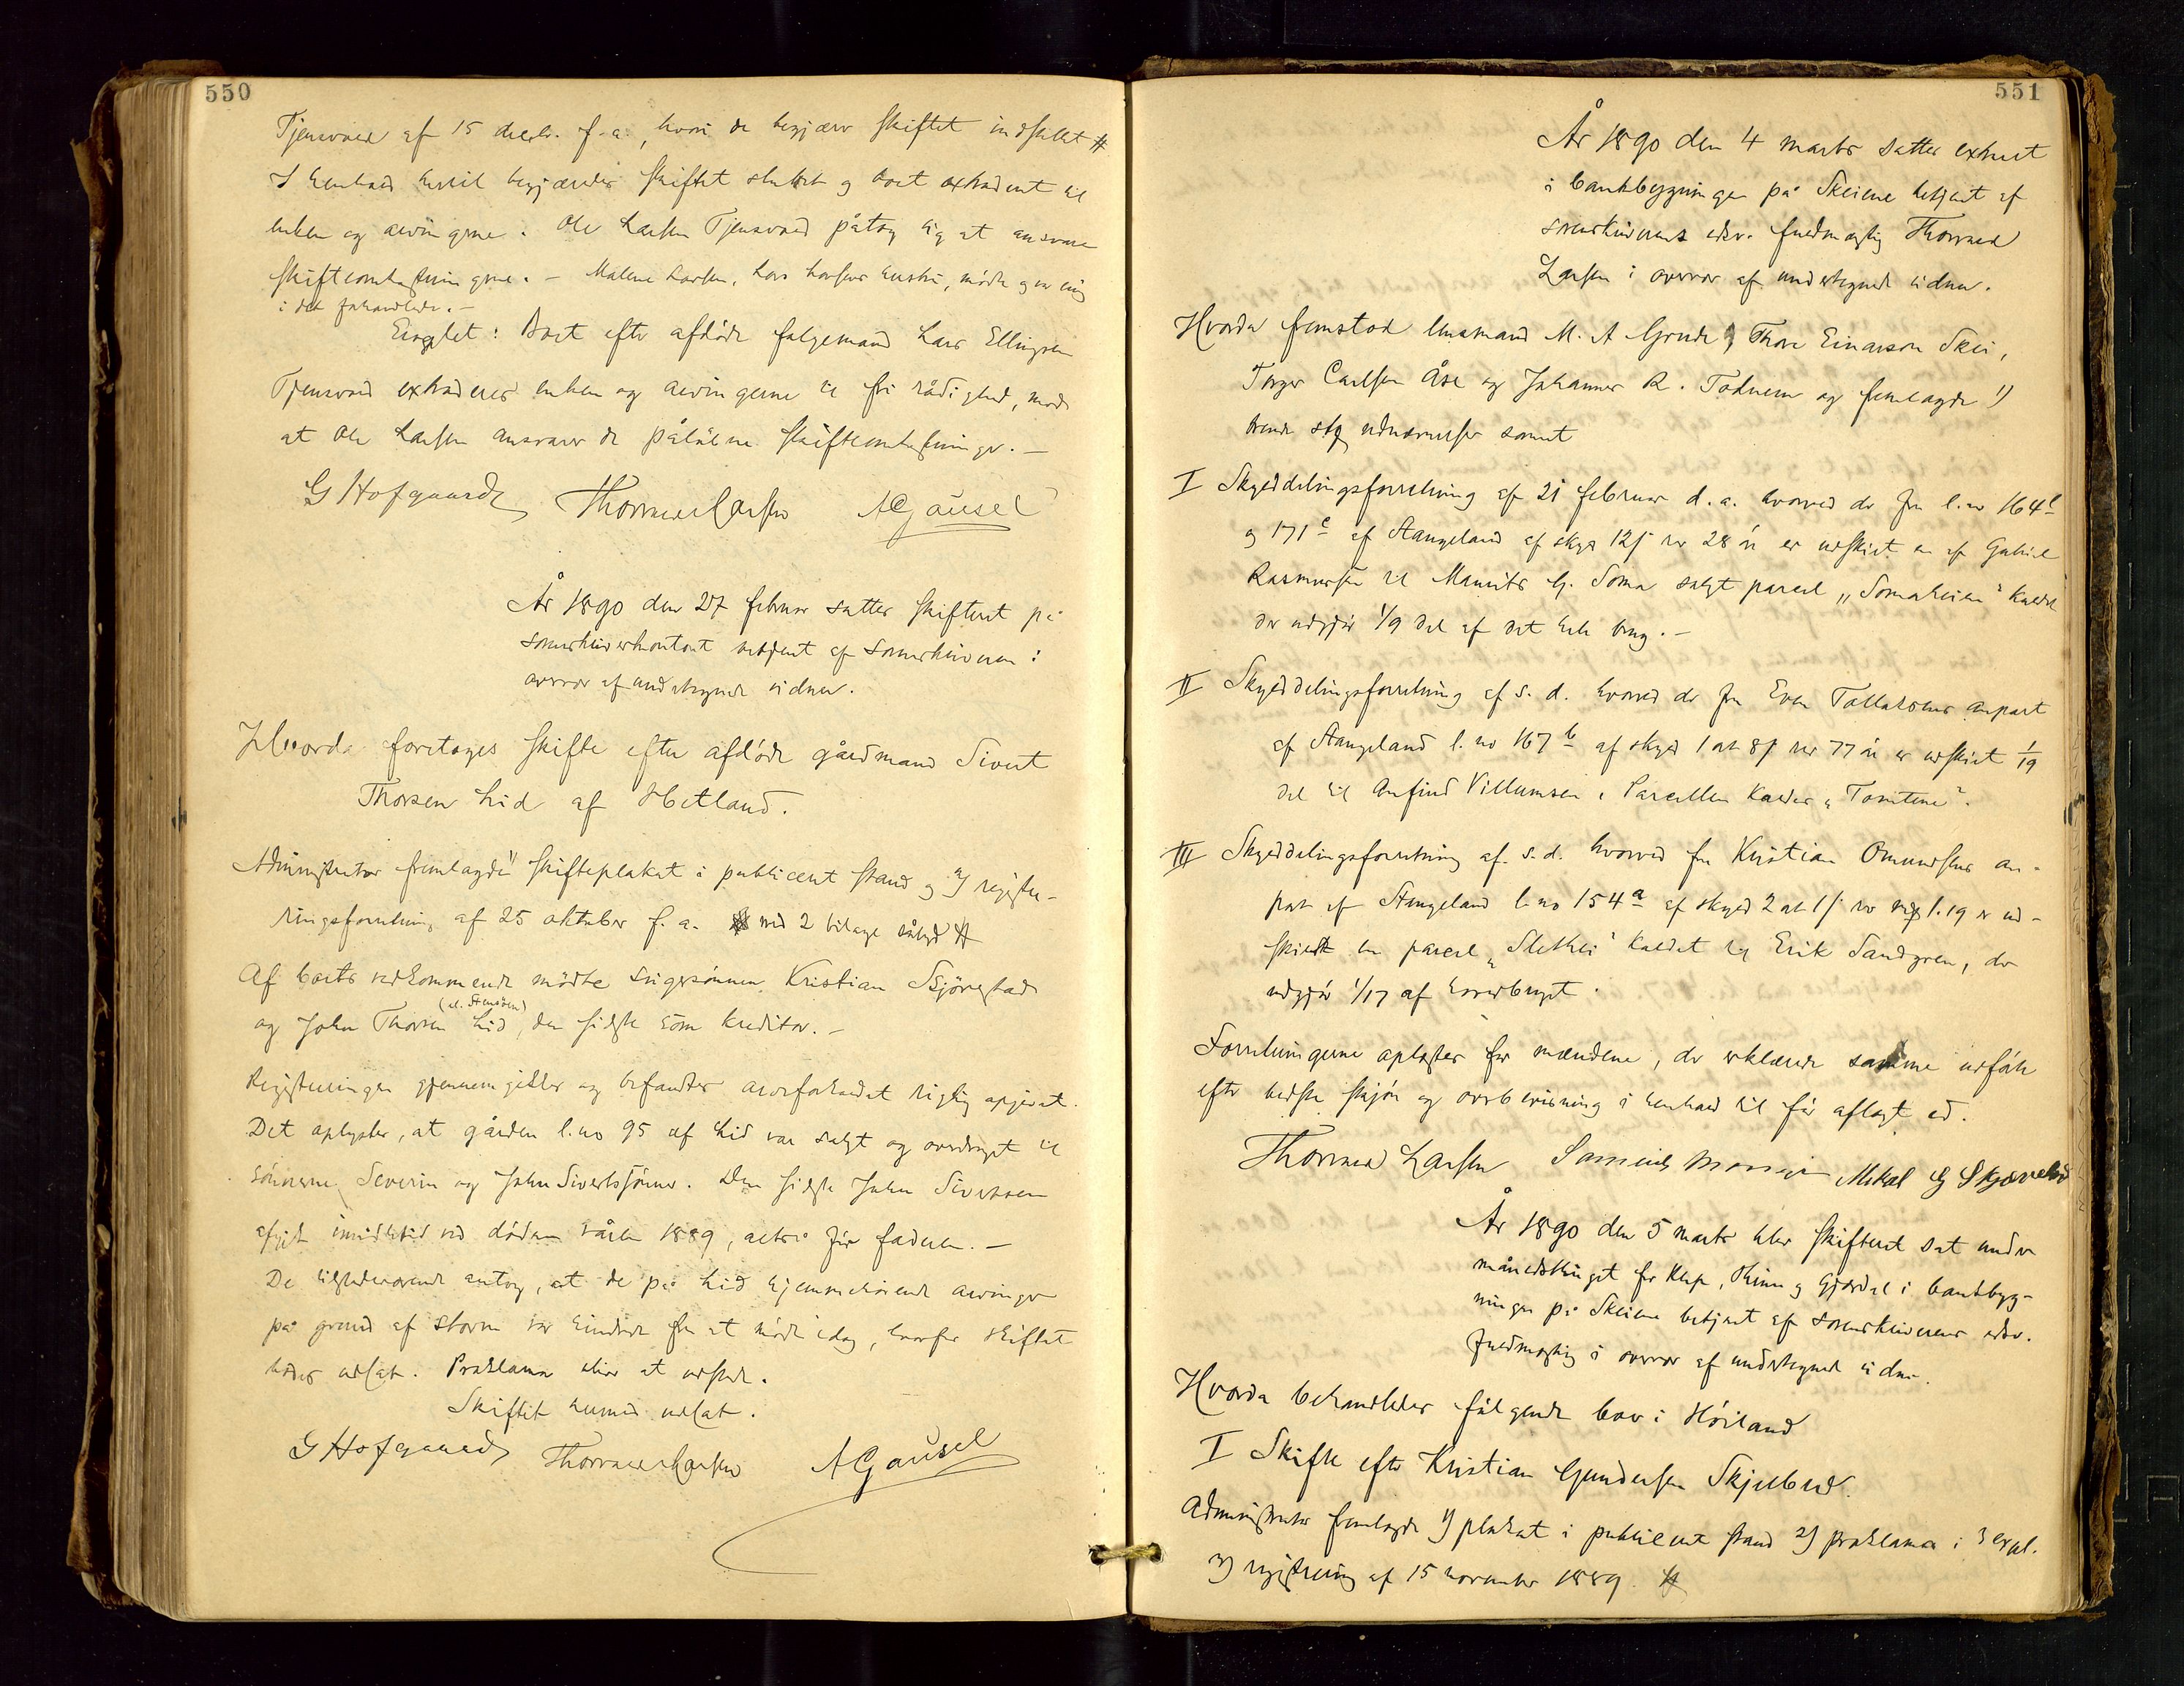 550
Tjensvold af 15 decbr. f. a., hvori de begjærer skiftet indstillet #
I henhold hertil begjæredes skiftet sluttet og boet extraderet til
enken og arvingerne. Ole Larsen Tjensvold påtog sig at ansvare
skifteomkostningerne. – Malene Larsen, Lars Larsens hustru, mødte og var enig
i det forhandlede. –
Eragtet: Boet efter afdøde følgemand Lars Ellingsen
Tjensvold extraderes enken og arvingerne til fri rådighed, mod
at Ole Larsen ansvarer de påløbne skifteomkostninger. –
G Hofgaard Thorvald Larsen A Gausel
År 1890 den 27 februar sattes skifteret på
sorenskriverkontoret betjent af sorenskriveren i
overvær af undertegnede vidner.
Hvorda foretoges skifte efter afdøde gårdmand Sivert
Thorsen Lid af Hetland.
Administrator fremlagde 1) skifteplakat i publiceret stand og 2) registre-
ringsforretning af 25 oktober f. a. med 2 bilage #
Af boets vedkommende mødte svigersønnen Kristian
og John Thorsen Lid, den sidste som kreditor. –
Registreringen gjennemgikkes og befandtes arveforholdet rigtig opgivet.
Det oplystes, at gården l. no 95 af Lid var solgt og overdraget til
sønnerne Severin og John Sivertsønner. Den sidste John Sivertsen
afgik imidlertid ved døden våren 1889, altså før faderen. –
De tilstedeværende antog, at de på Lid hjemmehørende arvinger
på grund af storm var hindrede fra at møde idag, hvorfor skiftet
udsat. Proklama bliver at udstede.
Skiftet hermed udsat.
G Hofgaard Thorvald Larsen A Gausel
551
År 1890 den 4 marts sattes extraret
i bankbygningen på Skeiene betjent af
sorenskriverens edsv. fuldmægtig Thorvald
Larsen i overvær af undertegnede vidner.
Hvorda fremstod lensmand M. A Grude, Thore Einarsen Skei,
Torger Carlsen Åse og Johannes R. Todnem og fremlagde 1)
trende stk udnævnelser samt
I Skylddelingsforretning af 21 februar d. a. hvorved der fra l. no 164
og 171 af Stangeland af skyld 12 rev 28 øre er udskilt en af Gabriel
Rasmussen til Maurits G. Soma solgt parcel „Somaheien" kaldet
der udgjør 1/9 del af det hele brug. –
II Skylddelingsforretning af s. d. hvorved der fra Even Tollaksens anpart
af Stangeland l. no 167 b af skyld 1 ort 8 rev 77 øre er udskilt 1/19
del til Anfind Villumsen. Parcellen kaldes „Tomtene".
III Skylddelingsforretning af s. d. hvorved fra Kristian Omundsens an-
part af Stangeland l. no 154 a af skyld 2 ort 1 rev 1.19 er ud-
skilt en parcel „Slethei" kaldet til Erik Sandgren, der
udgjør 1/17 af hovedbruget.
Forretningerne oplæstes for mændene, der erklærede samme udført
efter bedste skjøn og overbevisning i henhold til før aflagt ed.
Thorvald Larsen Mikal G Skjæveland
År 1890 den 5 marts blev skifteret sat under
månedsthinget for Klep, Thime og Gjæsdal i bankbyg-
ningen på Skeiene betjent af sorenskriverens edsv.
fuldmægtig i overvær af undertegnede vidner.
Hvorda behandledes følgende boer i Høiland
I Skifte efter Kristian Gundersen Skjelbred.
Administrator fremlagde 1) plakat i publiceret stand 2) proklama i 3 expl.
3) registrering af 15 november 1889. #